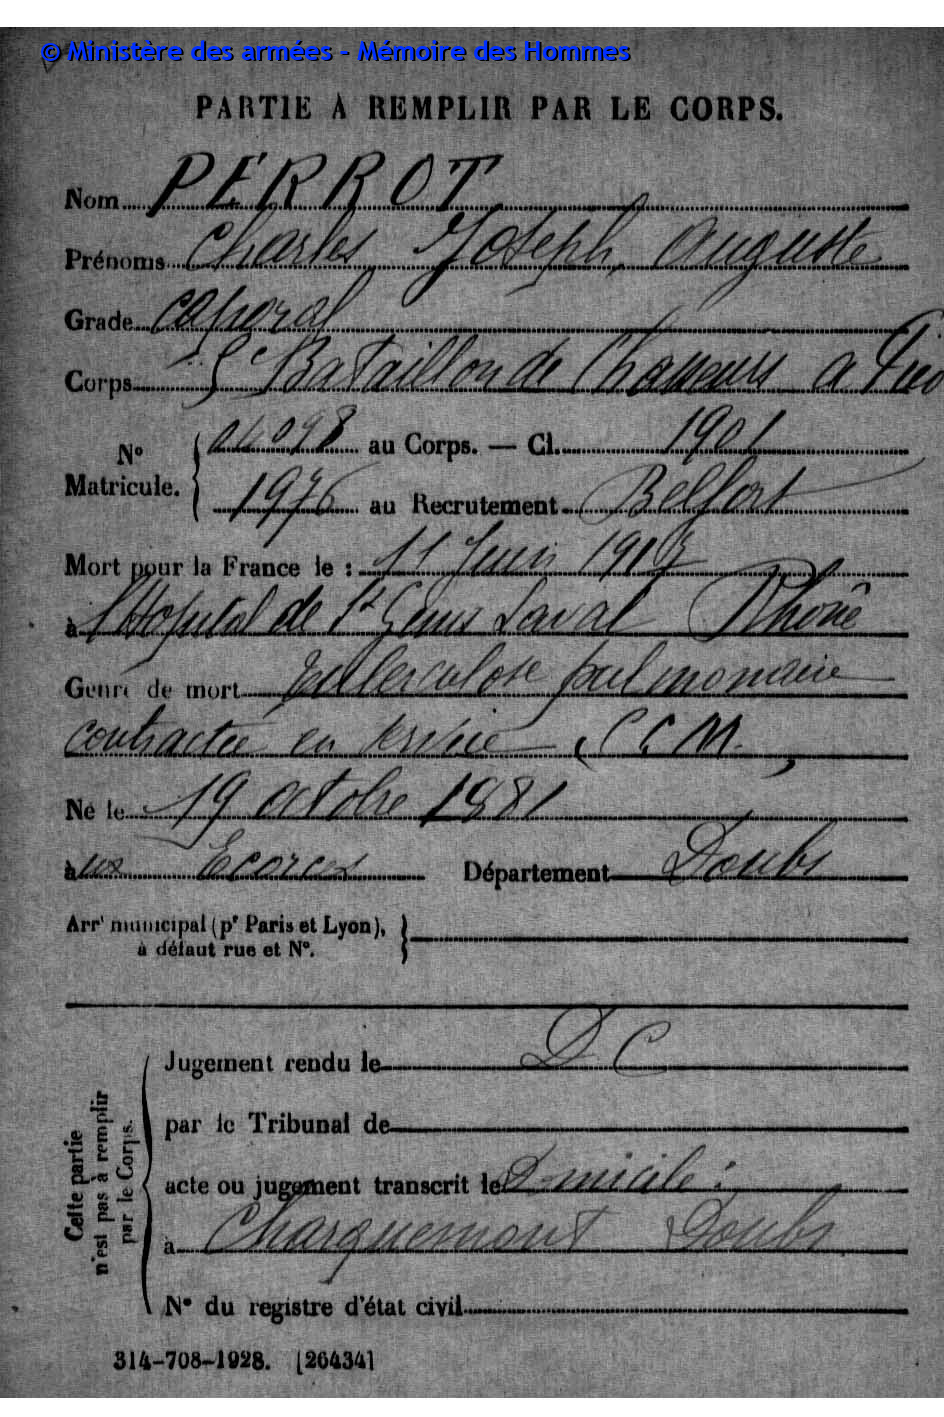 © Ministère des armées - Mémoire des Hommes
PARTIE À REMPLIR PAR LE CORPS.
Nom PERROT
Prénoms Charles Joseph, Auguste
Grade caporal
Corps 5e Bataillon de Chasseurs a Pied
No Matricule. { 04098 au Corps. — Cl. 1901
1976 au Recrutement Belfort
Mort pour la France le : 11 Juin 1917
à l'Hopital de St Genis Laval Rhône
Genre de mort Tuberculose pulmonaire
contractée en service (C.C.M.)
Né le 19 octobre 1881
aux Ecorces Département Doubs
Arrt municipal (pr Paris et Lyon), }
à défaut rue et No.
Cette partie n'est pas à remplir par le Corps.
Jugement rendu le D C
par le Tribunal de
acte ou jugement transcrit le Domicile :
à Charquemont Doubs
No du registre d'état civil
314-708-1928. [26434]